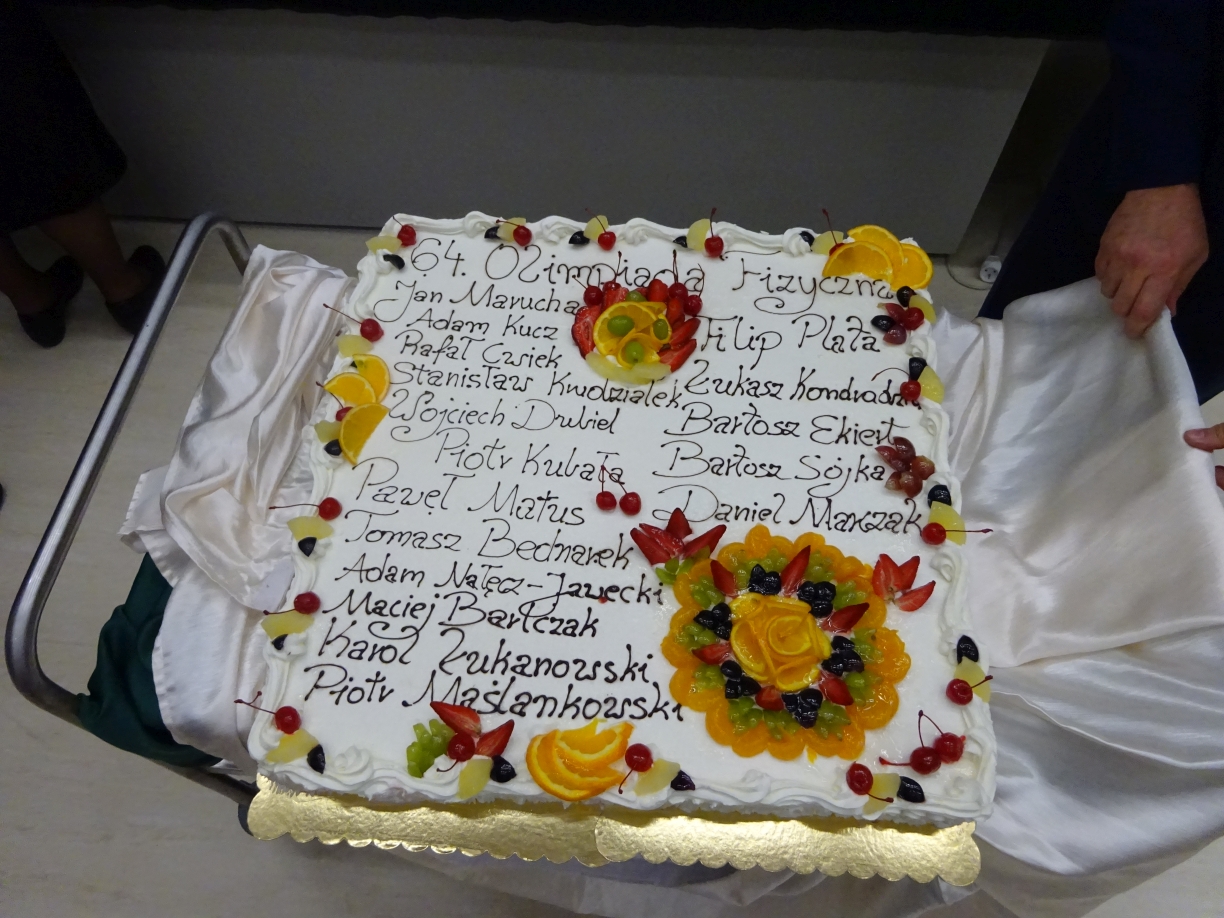 64. Olimpiada Fizyczna
Jan Marucha
Adam Kucz
Rafał Ćwiek
Stanisław Kwdzialek
Wojciech Drubiel
Piotr Kubala
Paweł Matus
Tomasz Bednarek
Adam Nałęcz-Jawecki
Maciej Bartczak
Karol Łukanowski
Piotr Maślankowski
Filip Plata
Łukasz
Bartosz Ekiert
Bartosz Sójka
Daniel Marczak